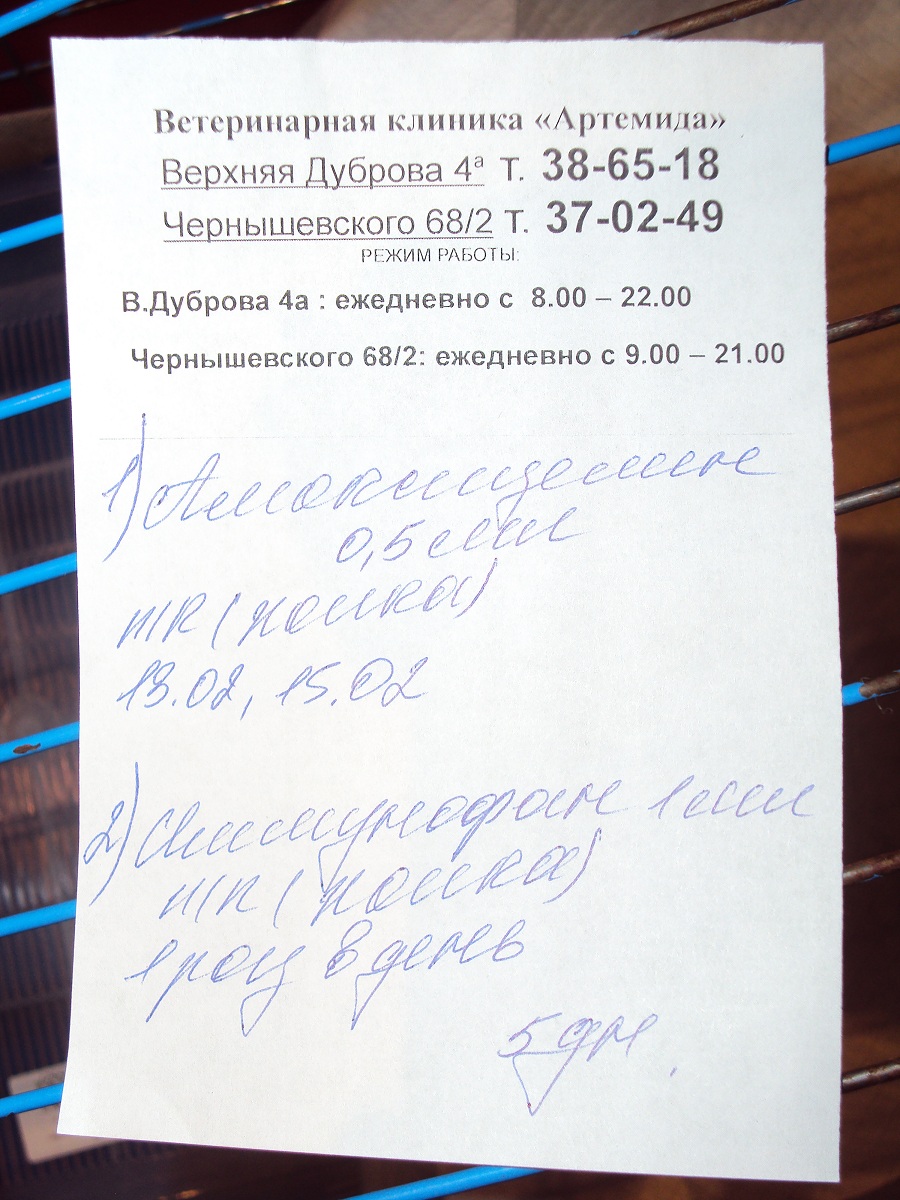 Ветеринарная клиника «Артемида»
Верхняя Дуброва 4ª т. 38-65-18
Чернышевского 68/2 т. 37-02-49
РЕЖИМ РАБОТЫ:
В.Дуброва 4а : ежедневно с 8.00 – 22.00
Чернышевского 68/2: ежедневно с 9.00 – 21.00
1) Амоксициллин
0,5 мл
п/к (холка)
13.02, 15.02
2) Иммунофан 1 мл
п/к (холка)
1 раз в день
5 дн.